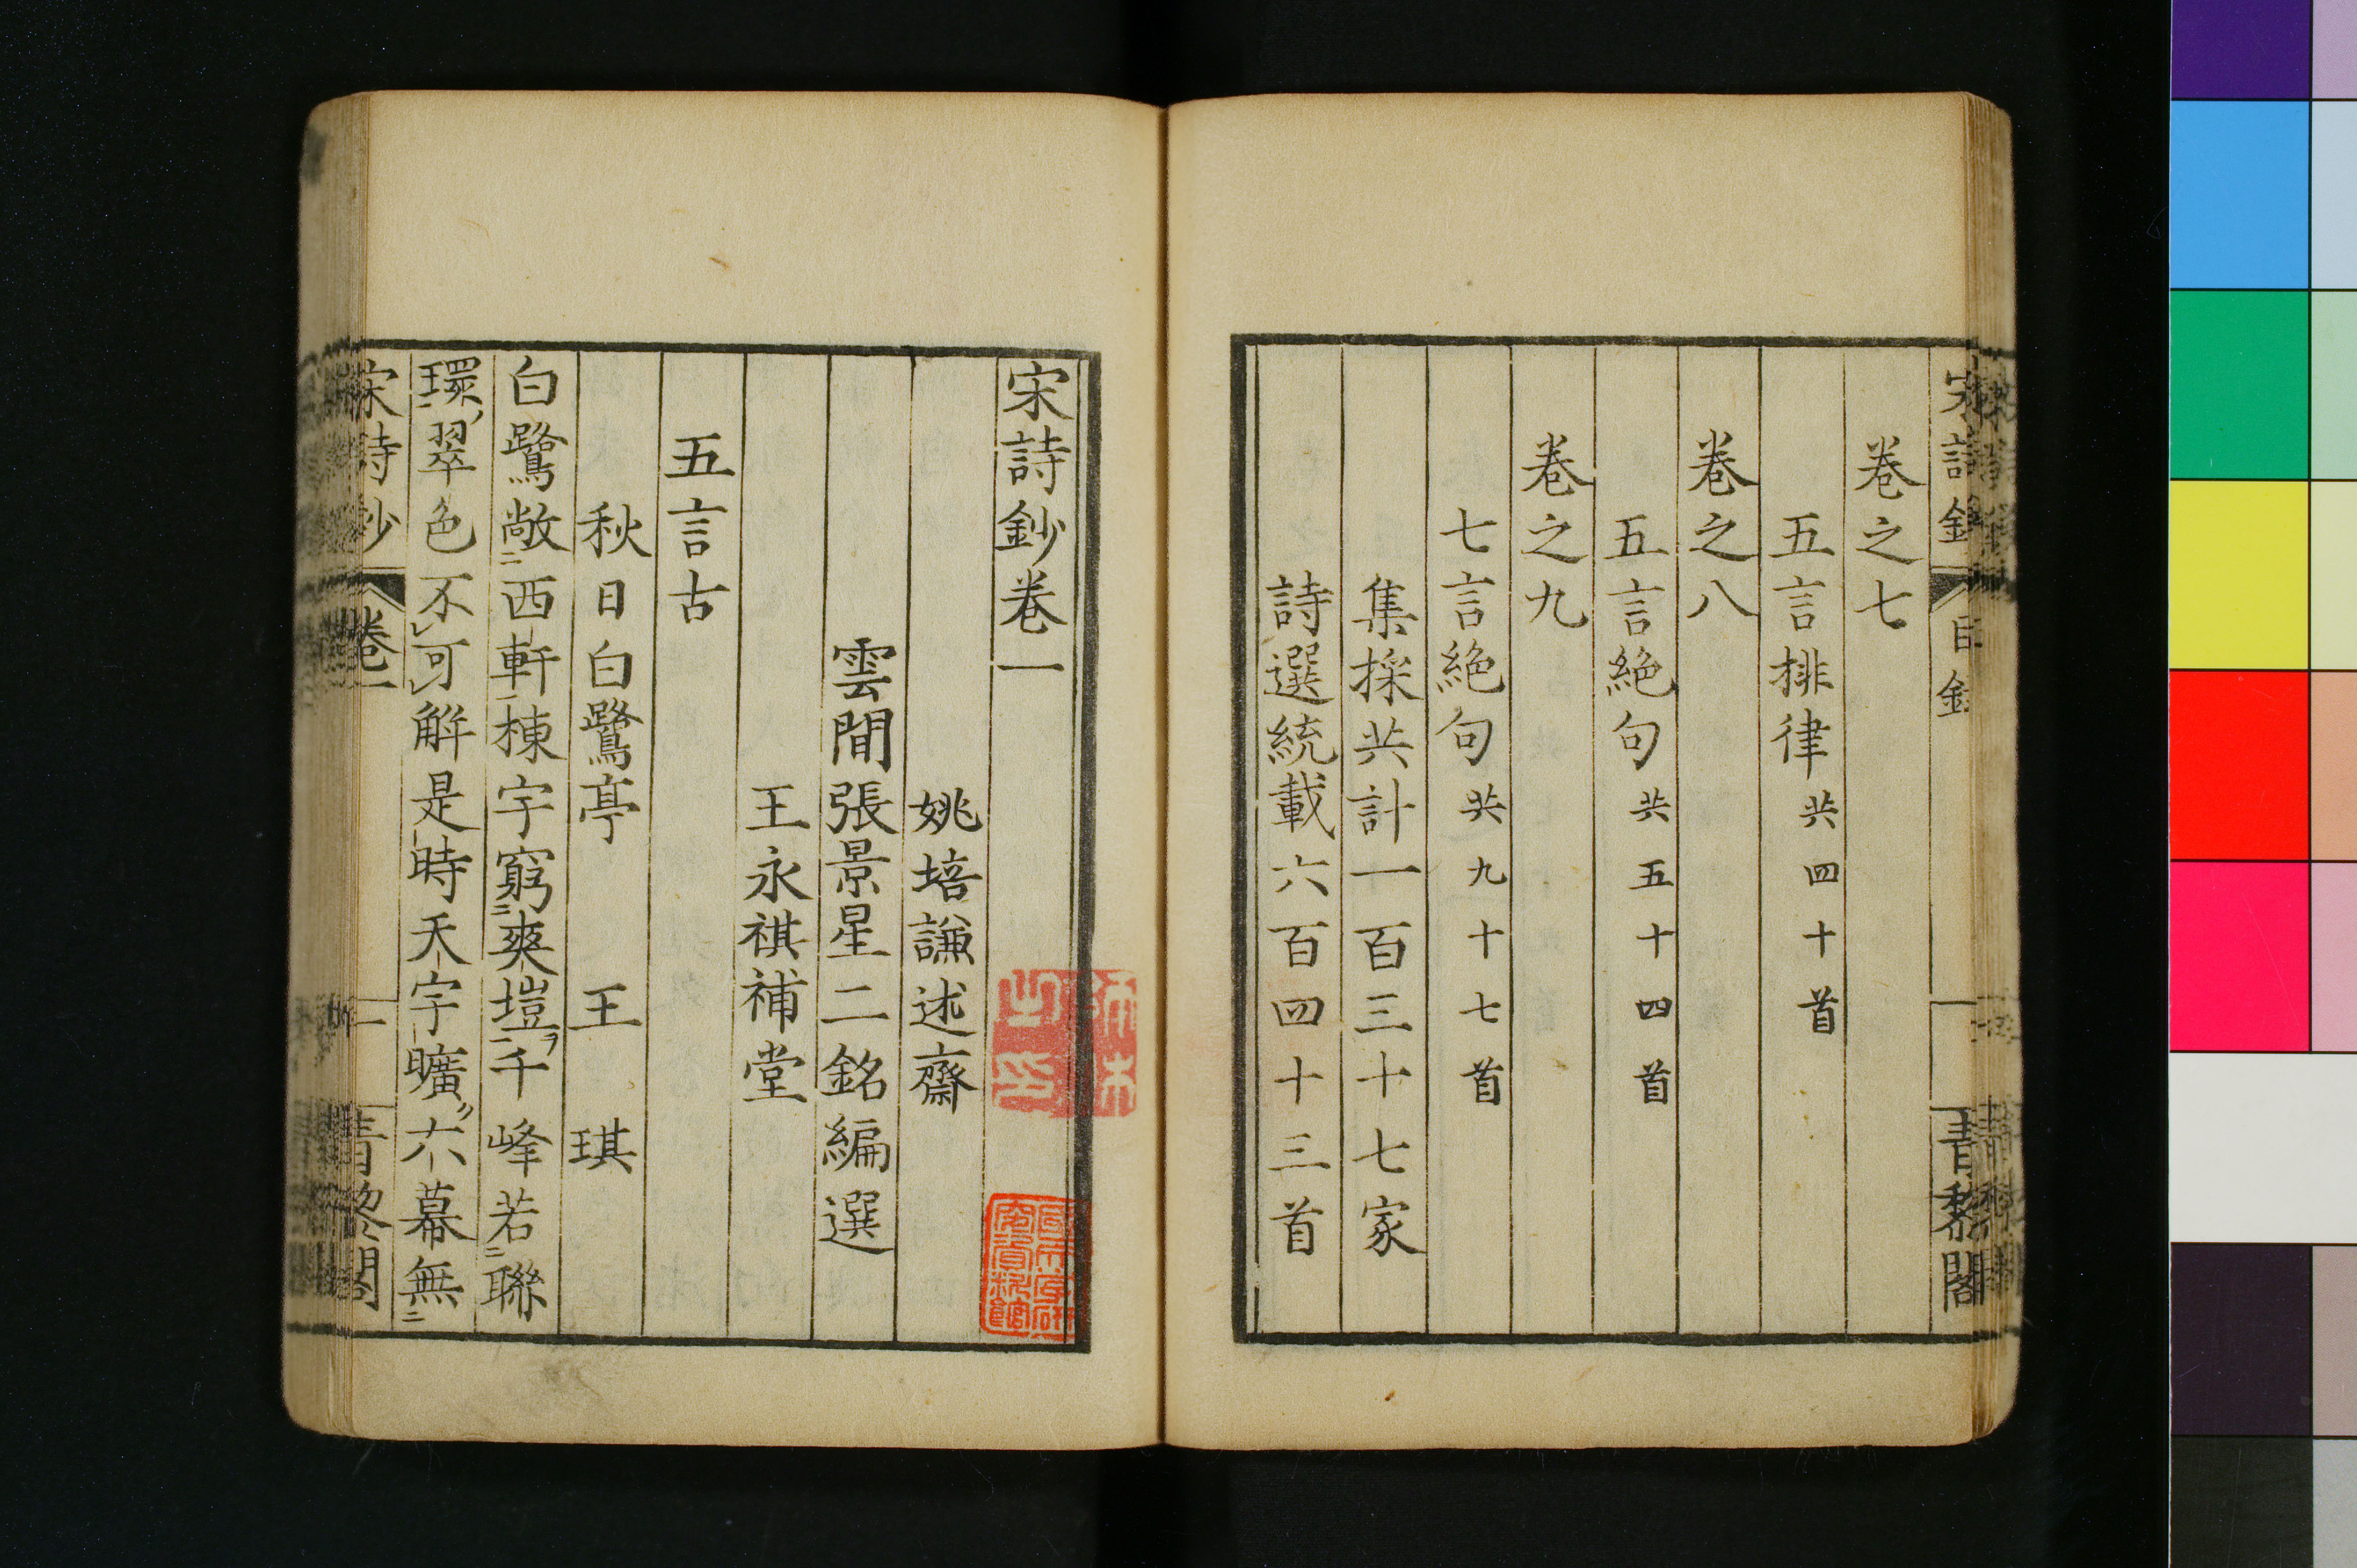 卷之七
五言排律 共四十首
卷之八
五言絶句 共五十四首
卷之九
七言絶句 共九十七首
集採共計一百三十七家
詩選統載六百四十三首
宋詩鈔卷一
姚培謙述齋
雲間張景星二銘編選
王永祺補堂
五言古
秋日白鷺亭 王琪
白鷺敞二西軒一棟宇窮二爽塏一ヲ千峰若二聯
環一ノ翠色不レ可レ解是時天宇曠〆六幕無二
宋詩鈔 卷一 一 青黎閣